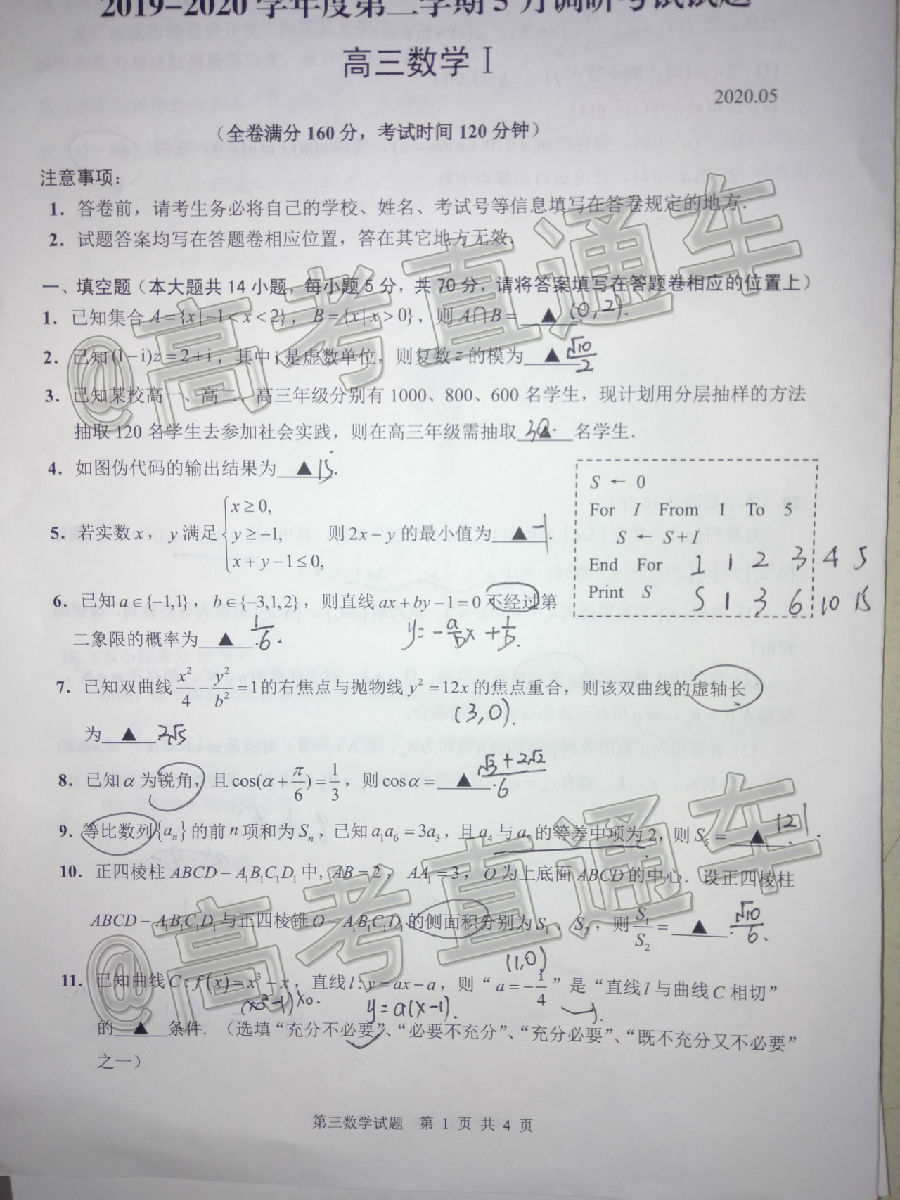 2019-2020 学年度第二学期5月调研考试试题
高三数学 I
2020.05
（全卷满分 160 分，考试时间 120 分钟）
注意事项：
1. 答卷前，请考生务必将自己的学校、姓名、考试号等信息填写在答卷规定的地方．
2. 试题答案均写在答题卷相应位置，答在其它地方无效．
一、填空题（本大题共 14 小题，每小题 5 分，共 70 分，请将答案填写在答题卷相应的位置上）
1. 已知集合 A={x|-1<x<2}，B={x|x>0}，则 A∩B= ▲ (0,2).
2. 已知(1-i)z=2+i，其中 i 是虚数单位，则复数 z 的模为 ▲ √10/2
3. 已知某校高一、高二、高三年级分别有 1000、800、600 名学生，现计划用分层抽样的方法
抽取 120 名学生去参加社会实践，则在高三年级需抽取 ▲ 30 名学生．
4. 如图伪代码的输出结果为 ▲ 15．
S ← 0
For I From 1 To 5
S ← S+I
End For 1 1 2 3 4 5
Print S S 1 3 6 10 15
x≥0,
5. 若实数 x，y 满足 y≥-1, 则 2x-y 的最小值为 ▲ -1
x+y-1≤0,
6. 已知 a∈{-1,1}，b∈{-3,1,2}，则直线 ax+by-1=0 不经过第
二象限的概率为 ▲ 1/6． y=-a/b x+1/b
7. 已知双曲线 x²/4-y²/b²=1 的右焦点与抛物线 y²=12x 的焦点重合，则该双曲线的虚轴长
(3,0).
为 ▲ 2√5
8. 已知 α 为锐角，且 cos(α+π/6)=1/3，则 cosα= ▲ (√3+2√2)/6．
9. 等比数列{aₙ}的前 n 项和为 Sₙ，已知 a₁a₆=3a₃，且 a₄ 与 a₅ 的等差中项为 2，则 S₅= ▲ 121．
10. 正四棱柱 ABCD-A₁B₁C₁D₁ 中，AB=2，AA₁=3，O 为上底面 ABCD 的中心．设正四棱柱
ABCD-A₁B₁C₁D₁ 与正四棱锥 O-A₁B₁C₁D₁ 的侧面积分别为 S₁、S₂，则 S₁/S₂= ▲ √10/6．
(1,0)
11. 已知曲线 C:f(x)=x³-x，直线 l:y=ax-a，则“a=-1/4”是“直线 l 与曲线 C 相切”
(x²-1)x. y=a(x-1).
的 ▲ 条件．（选填“充分不必要”、“必要不充分”、“充分必要”、“既不充分又不必要”
之一）
第三数学试题 第 1 页 共 4 页
@高考直通车
@高考直通车